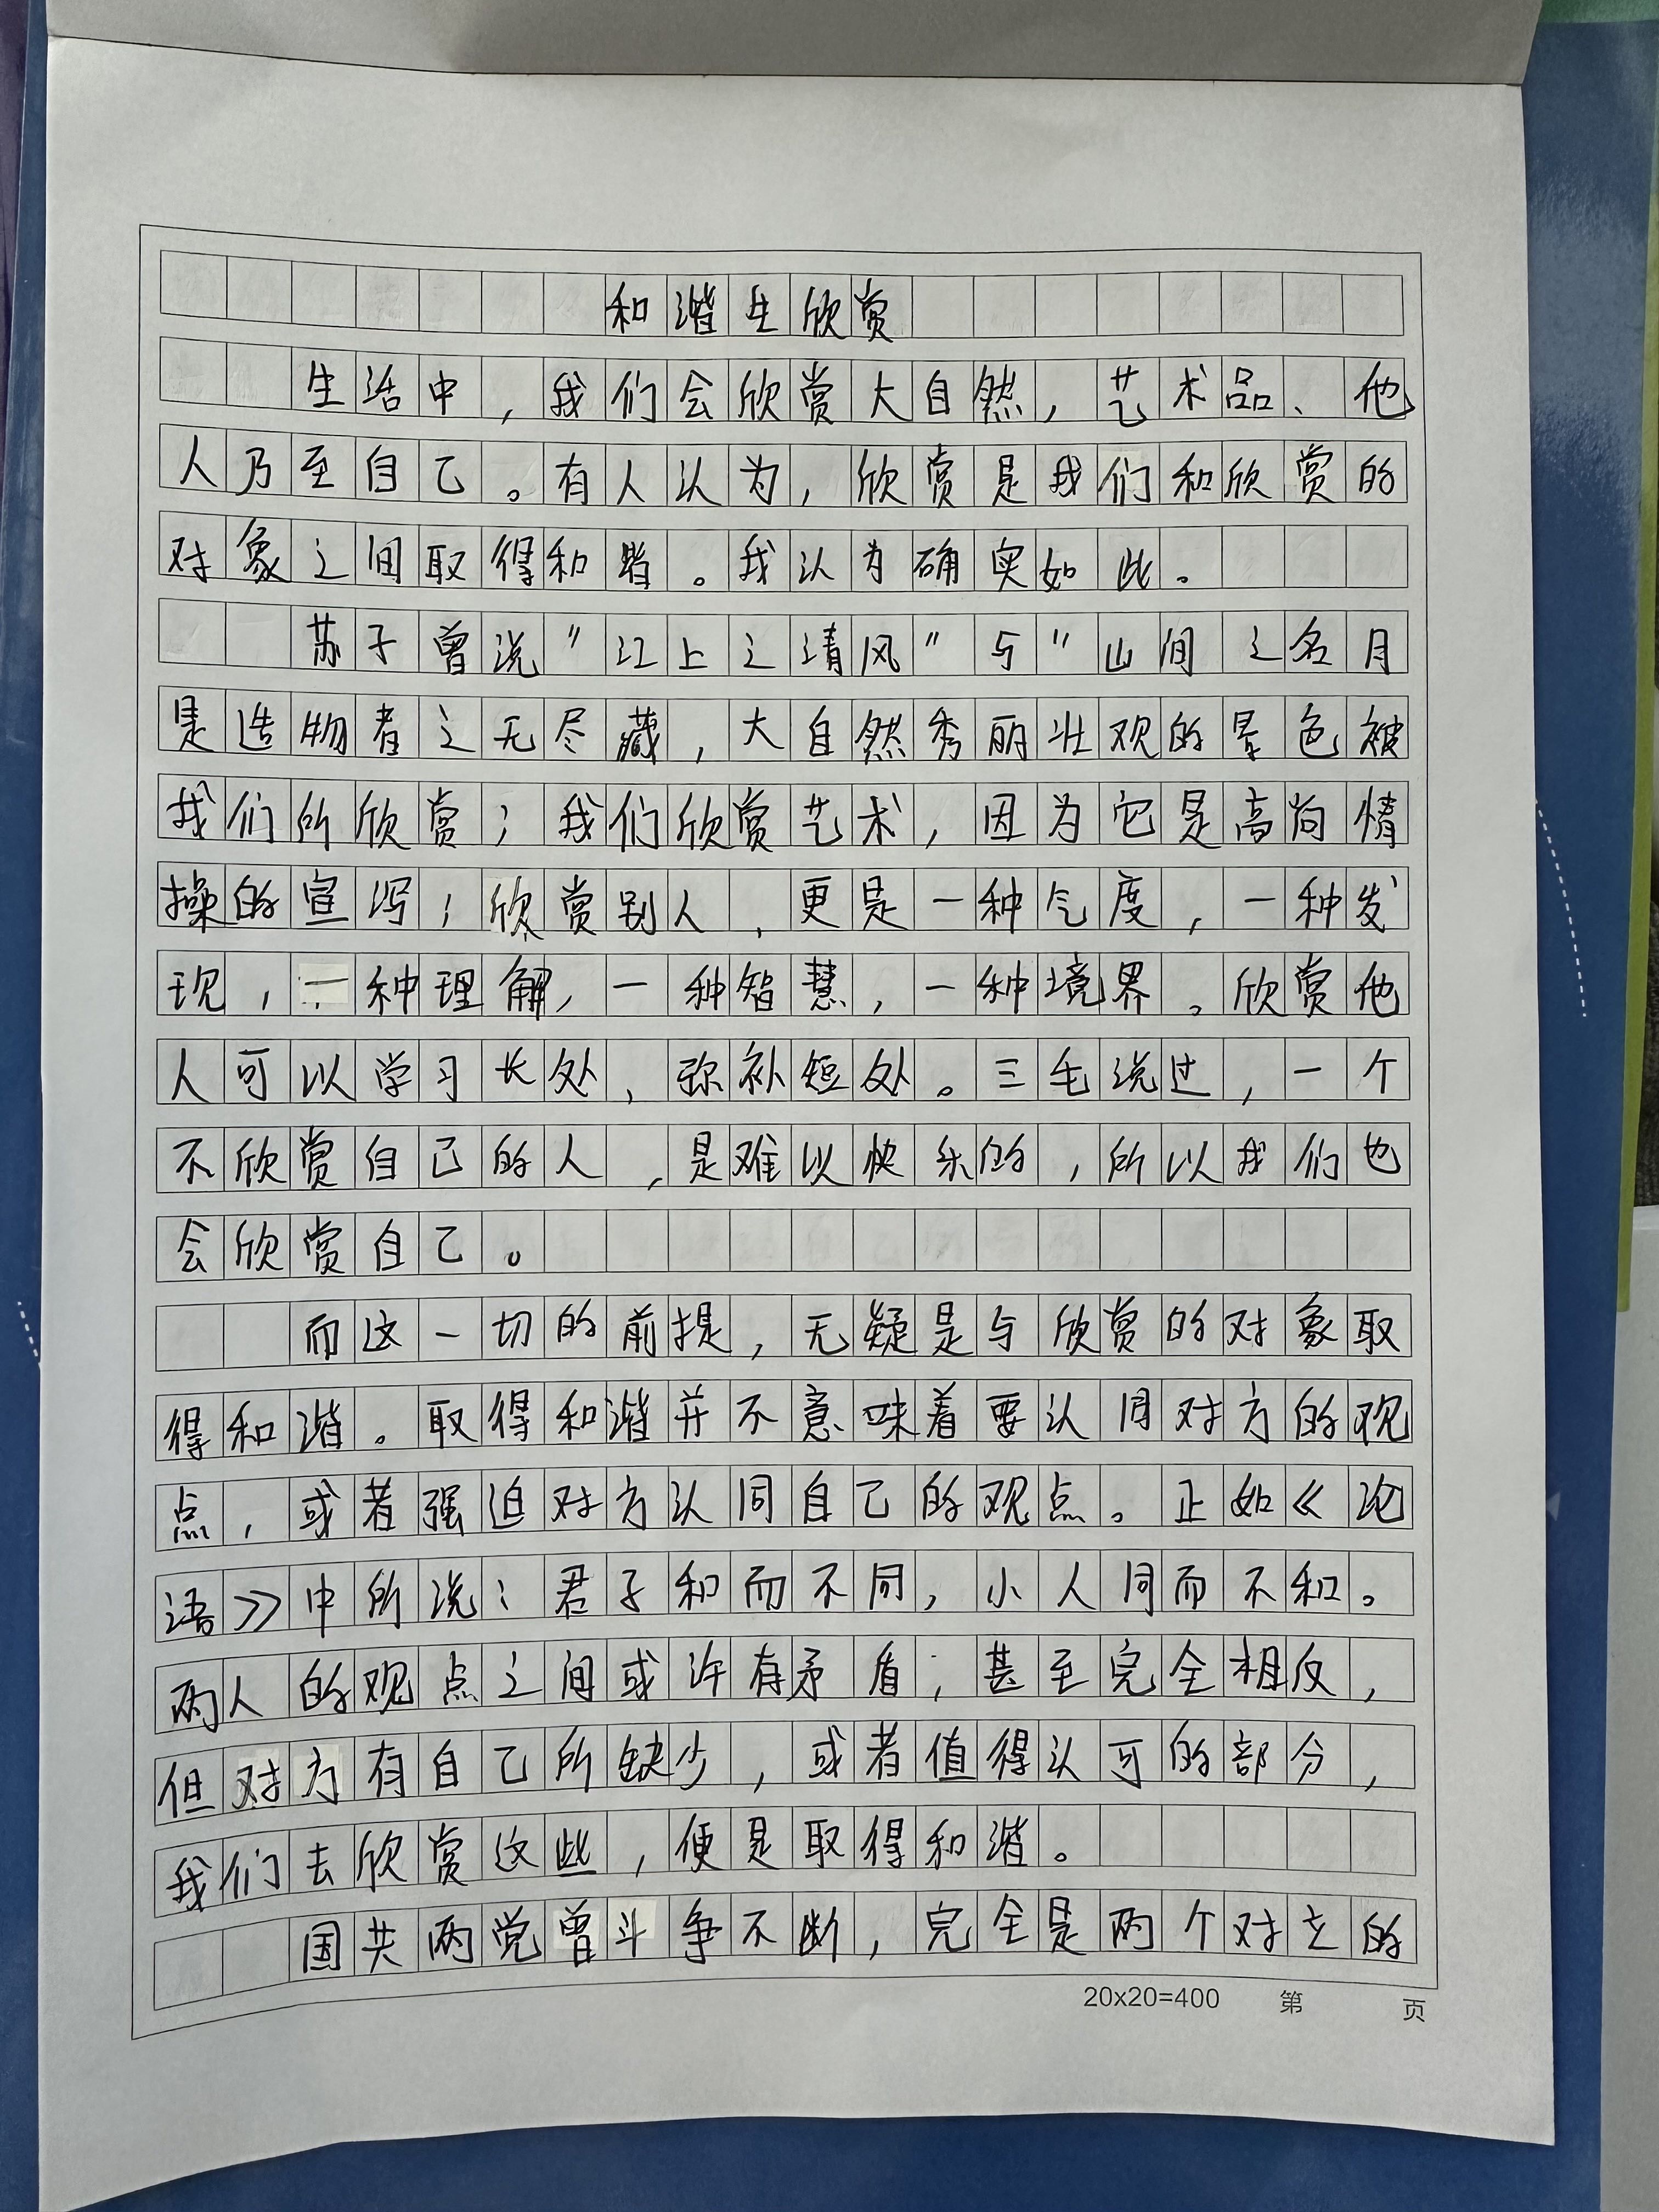 和谐生欣赏
生活中，我们会欣赏大自然，艺术品、他
人乃至自己。有人认为，欣赏是我们和欣赏的
对象之间取得和谐。我认为确实如此。
苏子曾说"江上之清风"与"山间之名月
是造物者之无尽藏，大自然秀丽壮观的景色被
我们所欣赏；我们欣赏艺术，因为它是高尚情
操的宣泻；欣赏别人，更是一种气度，一种发
现，一种理解，一种智慧，一种境界。欣赏他
人可以学习长处，弥补短处。三毛说过，一个
不欣赏自己的人，是难以快乐的，所以我们也
会欣赏自己。
而这一切的前提，无疑是与欣赏的对象取
得和谐。取得和谐并不意味着要认同对方的观
点，或者强迫对方认同自己的观点。正如《论
语》中所说：君子和而不同，小人同而不和。
两人的观点之间或许有矛盾；甚至完全相反，
但对方有自己所缺少，或者值得认可的部分，
我们去欣赏这些，便是取得和谐。
国共两党曾斗争不断，完全是两个对立的
20x20=400 第 页